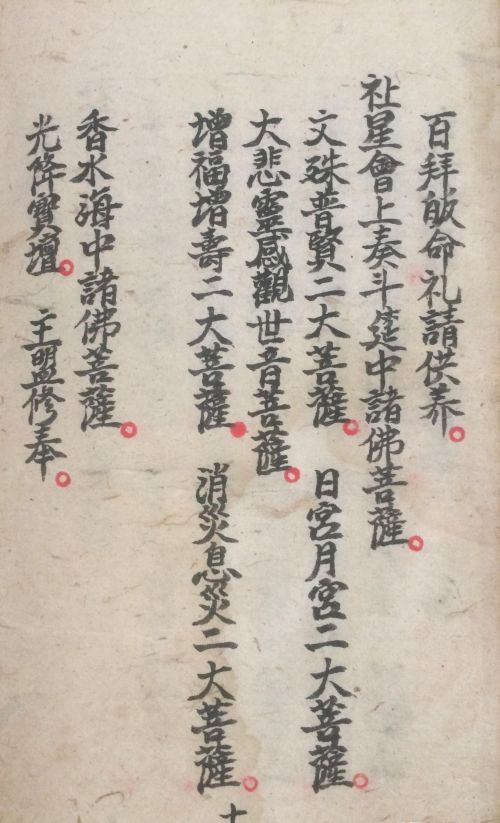 百拜皈命礼請供养。
社星會上奏斗筵中諸佛菩薩。
文殊普賢二大菩薩。 日宮月宮二大菩薩。
大悲靈感觀世音菩薩。
增福增壽二大菩薩。 消災息災二大菩薩。
香水海中諸佛菩薩。
光降寶壇。 主盟修奉。
十